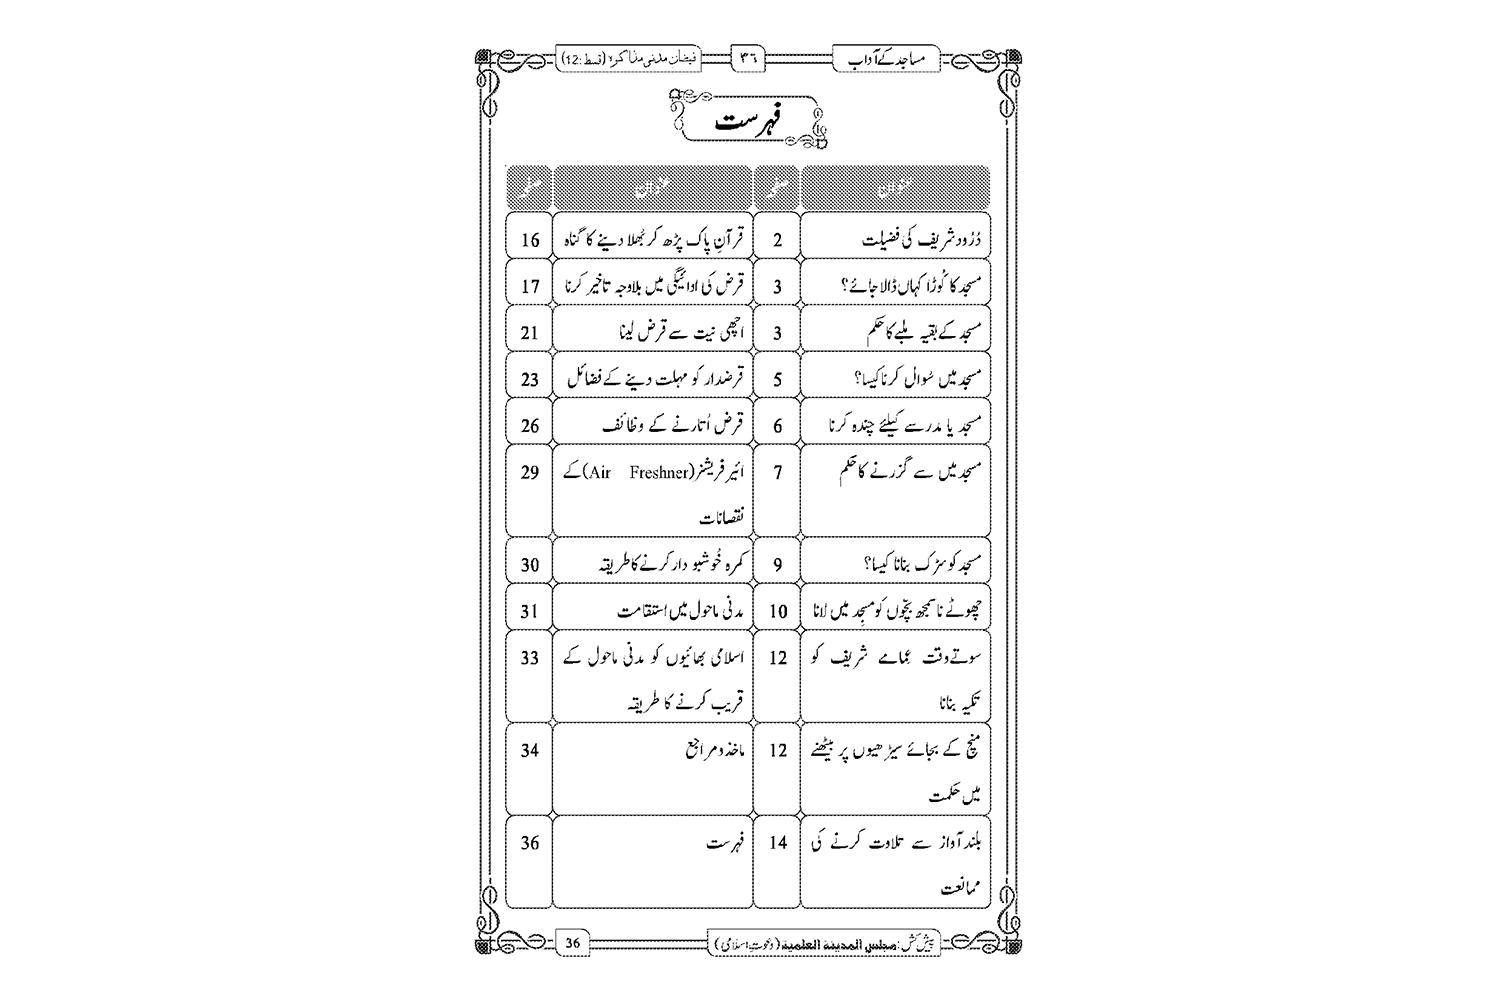 مساجد کے آداب ٣٦ فیضان مدنی مذاکرہ (قسط:12)
فہرست
عنوان صفحہ عنوان صفحہ
دُرُود شریف کی فضیلت 2 قرآنِ پاک پڑھ کر بُھلا دینے کا گناہ 16
مسجد کا کُوڑا کہاں ڈالا جائے؟ 3 قرض کی ادائیگی میں بلاوجہ تاخیر کرنا 17
مسجد کے بقیہ ملبے کا حکم 3 اچھی نیت سے قرض لینا 21
مسجد میں سُوال کرنا کیسا؟ 5 قرضدار کو مہلت دینے کے فضائل 23
مسجد یا مدرسے کیلئے چندہ کرنا 6 قرض اُتارنے کے وظائف 26
مسجد میں سے گزرنے کا حکم 7 ائیر فریشنر (Air Freshner) کے 29
نقصانات
مسجد کو سڑک بنانا کیسا؟ 9 کمرہ خُوشبو دار کرنے کا طریقہ 30
چھوٹے ناسمجھ بچّوں کو مسجِد میں لانا 10 مدنی ماحول میں استقامت 31
سوتے وقت عِمامے شریف کو 12 اسلامی بھائیوں کو مدنی ماحول کے 33
تکیہ بنانا قریب کرنے کا طریقہ
منچ کے بجائے سیڑھیوں پر بیٹھنے 12 ماخذ و مراجع 34
میں حکمت
بلند آواز سے تلاوت کرنے کی 14 فہرست 36
ممانعت
پیش کش: مجلس المدینۃ العلمیۃ (دعوتِ اسلامی) 36